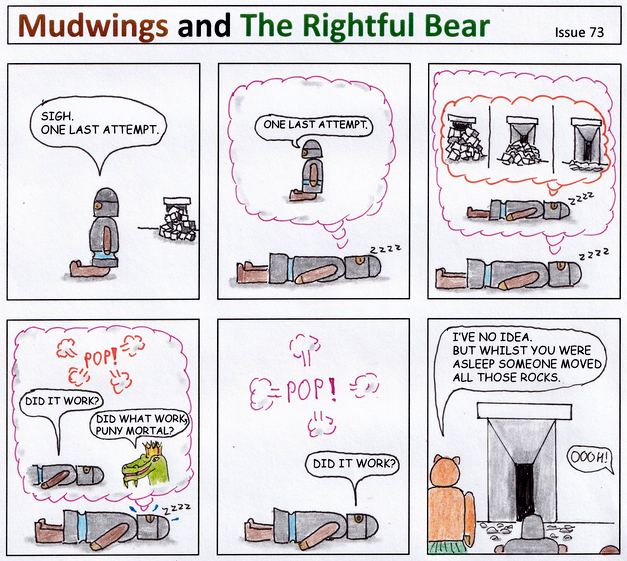 Mudwings and The Rightful Bear
Issue 73
SIGH.
ONE LAST ATTEMPT.
ONE LAST ATTEMPT.
ZZZZ
ZZZZ
ZZZZ
POP!
DID IT WORK?
DID WHAT WORK,
PUNY MORTAL?
ZZZZ
POP!
DID IT WORK?
I'VE NO IDEA.
BUT WHILST YOU WERE
ASLEEP SOMEONE MOVED
ALL THOSE ROCKS.
OOOH!